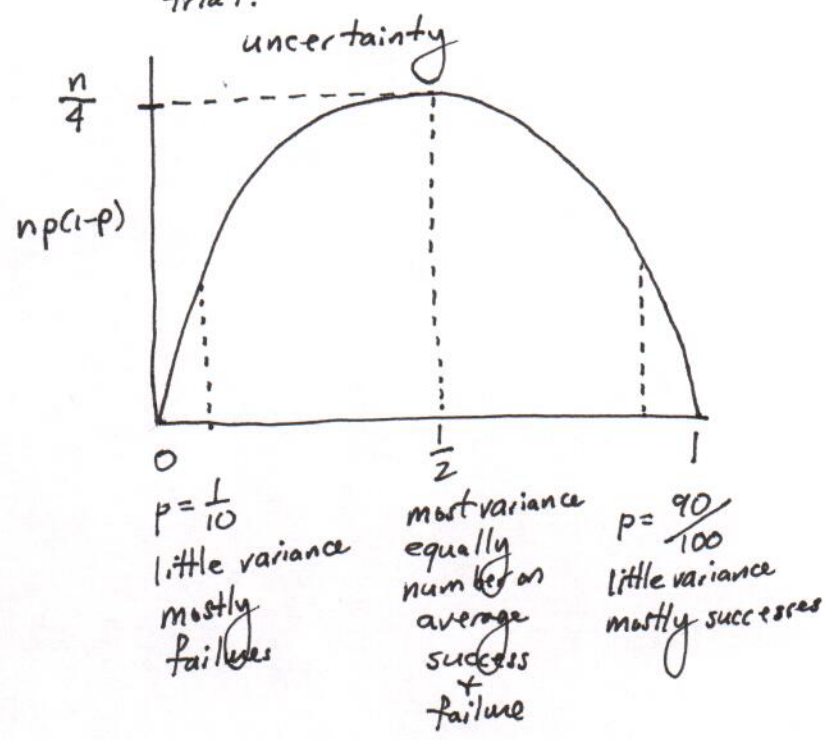 trial.
uncertainty
n/4
np(1-p)
0
1/2
1
p = 1/10
little variance
mostly
failures
most variance
equally
number on
average
success
+
failure
p = 90/100
little variance
mostly successes